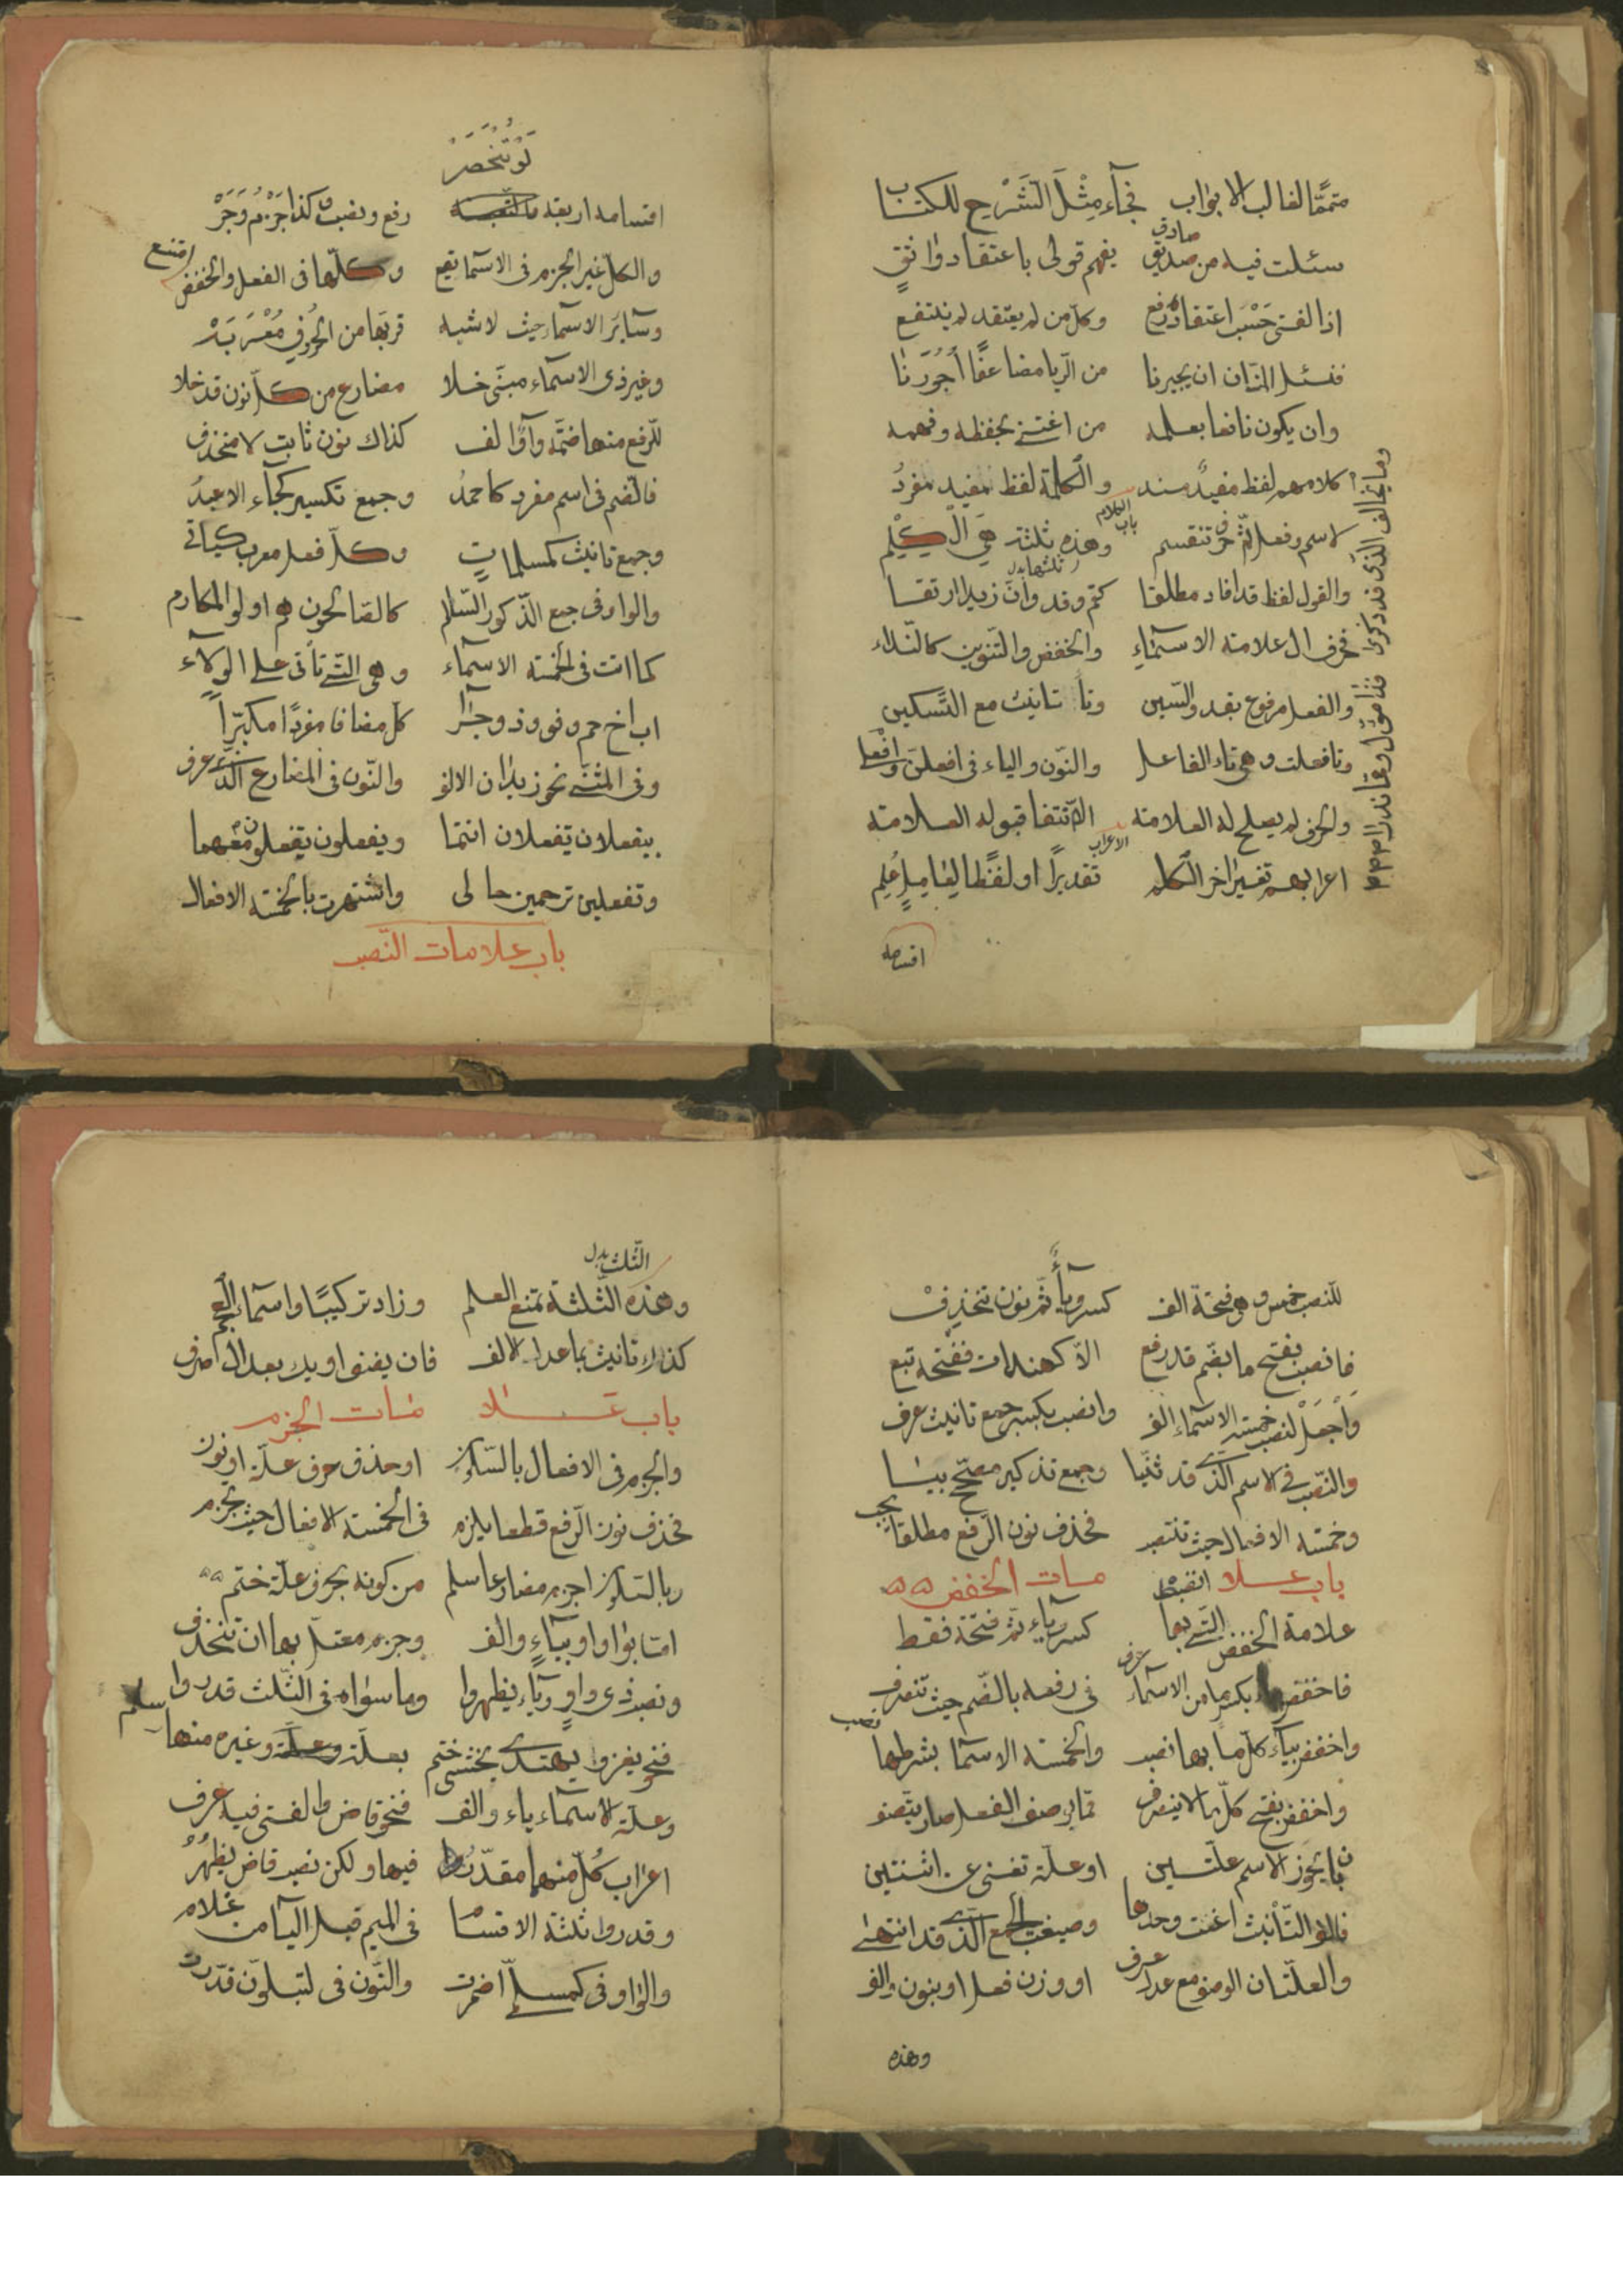 متمما لغالب الابواب فجآء مِثْلَ الشَّرْحِ للكتاب
سئلت فيه من صديق صادق يفهم قولى باعتقاد واثقٍ
اذ الفتى حَسْبَ اعتقاده رفع وكل من لم يعتقد لم ينتفع
فنسئل المنّان ان يجيرنا من الرّيا مضاعفًا أُجُورَنا
وان يكون نافعا بعلمه من اعتنى بحفظه وفهمه
كلامهم لفظ مفيدٌ مسند والكلمة لفظ مفيد مفردُ
باب الكلام
لاسم وفعل ثمّ حرف تنقسم وهذه ثلثة هَىَ الْكَلِم
ثلثها بدل
والقول لفظ قد افاد مطلقا كقم وقد وانّ زيدا ارتقا
فحرف ال علامة الاسمآءِ والخفض والتّنوين كالنّداء
والفعل مرفوع بقد والسّين وتآ تانيث مع التّسكين
وتا فعلت وهى تاء الفاعل والنّون والياء فى افعلنَ وافْعلى
والحرف لم يصلح له العلامة الّا انتفا قبوله العلامة
الاعراب
اعرابهم تغيير اخر الكلم تقديرًا او لفظًا لعاملٍ عُلِم
اقسامه
لَوْ تُنْحَصَرْ
اقسامه اربعة رفع ونصب كذا جَزْمٌ وَجَرْ
والكل غير الجزم فى الاسما يقع وكلّها فى الفعل والخفض امتنع
وسآئرَ الاسمآ حيث لا شبه قربَها من الحُرُوفِ مُعْرَبَهْ
وغير ذى الاسمآء مبنّى خلا مضارع من كلّ نون قد خلا
للرّفع منها ضمّة واوٌ الف كذاك نون ثابت لا منحذف
فالضّم فى اسم مفرد كاحمدُ وجمع تكسير كجآء الاعبدُ
وجمع تانيث كمسلماتٍ وكلّ فعل معرب كياتى
والواو فى جمع الذّكور السّالم كالصّالحون هم اولو المكارم
كما اتت فى الخمسة الاسمآء وهى الّتى تأتى على الولآء
اب اخ حم وفو وذو جرا كل مضافا مفردًا مكبّرًا
وفى المثنّى نحو زيدان الالف والنّون فى المضارع الّذى عرف
بيفعلان تفعلان انتما ويفعلون تفعلون معهما
وتفعلين ترحمين حالى واشتهرت بالخمسة الافعال
باب علامات النّصب
للنصب خمس وهى فتحة الف كسر ويآءٌ ثمّ نون تنحذِفْ
فانصب بفتح ما بضّم قد رفع الّا كهندات ففتحه تبع
وَاْجْعَلْ لنصب خمسة الاسمآء الف وانصب بكسر جمع تانيث عرف
والنّصب فى الاسم الّذى قد ثنّيا وجمع تذكير مصحّح بيا
وخمسة الافعال حيث تنتصب فحذف نون الرّفع مطلقا يجب
باب علامات الخفض
علامة الخفض الّتى بها انضبط كسر وياء ثمّ فتحة فقط
فاخفض بكسر ما من الاسمآء عرف فى رفعه بالضّم حيث تنصرف
واخفض بيآء كلّ ما بها نصب والخمسة الاسما بشرطها نصب
واخفض بفتح كلّ ما لا ينصرف ممّا بوصف الفعل صار يتّصف
بان يحوز الاسم علّتين او علّة تغنى عن اثنتين
فالف التّانيث اغنت وحدها وصيغة الجمع الّذى قد انتهى
والعلّتان الوصف مع عدل عرف او وزن فعل او بنون والف
وهذه
الثّلث بدل
وهذه الثّلثة تمنع العلم وزاد تركيبًا واسمآء العجم
كذاك تانيث بما عدا الالف فان يضف او يك بعد ال صرف
باب علامات الجزم
والجزم فى الافعال بالسّكون او حذف حرف علّة او نون
فحذف نون الرّفع قطعا يلزم فى الخمسة الافعال حيث تجزم
وبالسّكون اجزم مضارعا سلم من كونه بحرف علّة ختم
امّا بواو او بيآءٍ والف وجزم معتلّ بها ان تنحذف
ونصب ذى واوٍ وياء يظهروا وما سواه فى الثّلث قدروا
فنحو يغزوا يهتدى يخشى ختم بعلّة وغيره منها سلم
وعلّة الاسمآء ياء والف فنحو قاض والفتى فيه عرف
اعراب كُلّ منها مقدّر فيها ولكن نصب قاض يظهرُ
وقدروا ثلثة الاقسام فى الميم قبل اليآ من غلام
والواو فى كمسلمىّ اضمرت والنّون فى لتبلوّن قدّرت